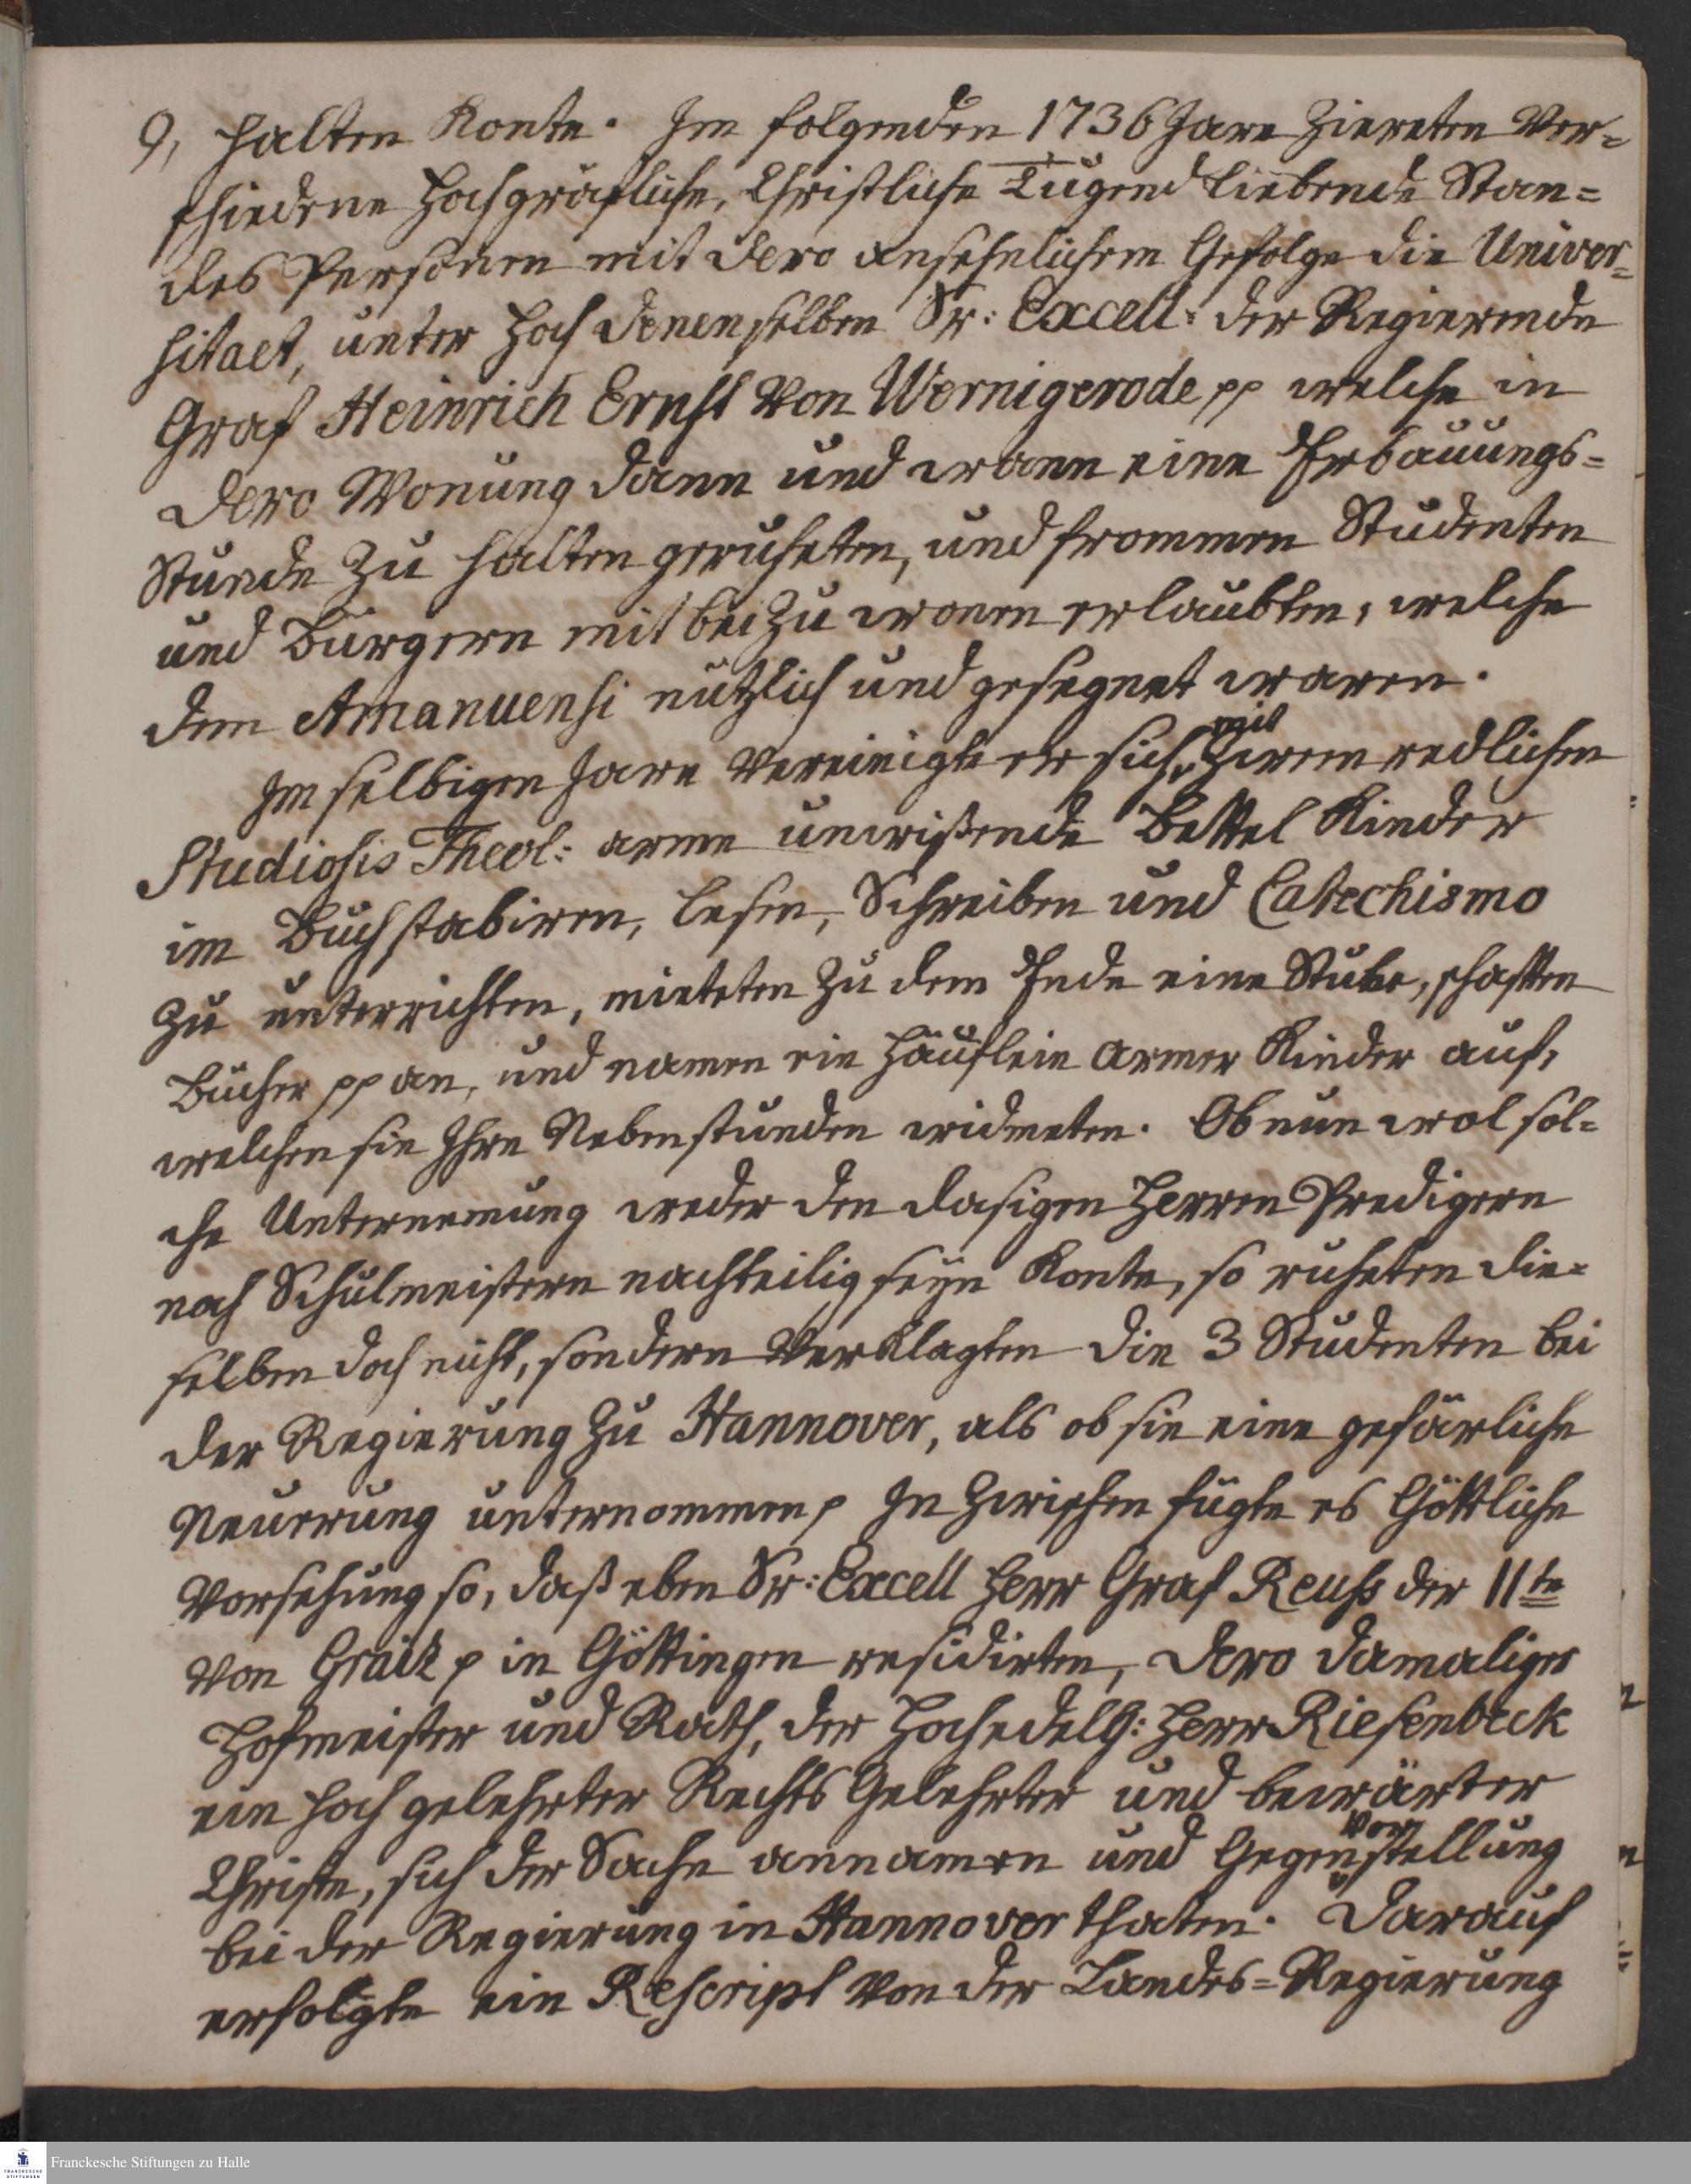 9, halten konte. Im folgenden 1736 Jare ziereten ver=
schiedene Hochgräfliche, Christliche Tugend liebende Stan=
des Personen mit dero ansehnlichem Gefolge die Univer=
sitaet, unter hoch denenselben Sr: Excell: der Regierende
Graf Heinrich Ernst von Wernigerode pp welche in
dero Wonung dann und wann eine Erbauungs=
Stunde zu halten geruheten, und frommen Studenten
und Bürgern mit bei zu wonen erlaubten, welche
dem Amanuensi nützlich und gesegnet waren.
Im selbigen Jare vereinigte er sich mit zween redlichen
Studiosis Theol: arme unwißende Bettel Kinder
im Buchstabiren, Lesen, Schreiben und Catechismo
zu unterrichten, mieteten zu dem Ende eine Stube, schafften
Bücher pp an, und namen ein Häuflein armer Kinder auf,
welchen sie Ihre Nebenstunden widmeten. Ob nun wol sol=
che Unternemung weder den dasigen Herren Predigern
noch Schulmeistern nachteilig seyn konte, so ruheten die=
selben doch nicht, sondern verklagten die 3 Studenten bei
der Regierung zu Hannover, als ob sie eine gefärliche
Neuerung unternommen p In zwischen fügte es Göttliche
Vorsehung so, daß eben Sr: Excell Herr Graf Reuss der 11te
von Graitz p in Göttingen residirten, dero damaliger
Hofmeister und Rath, der Hochedelg: Herr Riesenbeck
ein hoch gelehrter Rechts Gelehrter und bewärter
Christe, sich der Sache annamen und Gegenvorstellung
bei der Regierung in Hannover thaten. Darauf
erfolgte ein Rescript von der Landes=Regierung
Franckesche Stiftungen zu Halle
FRANCKESCHE
STIFTUNGEN